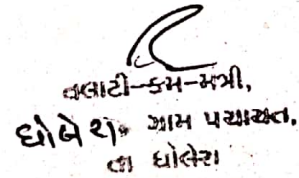 તલાટી-કમ-મંત્રી,
ધોલેરા ગ્રામ પંચાયત.
તા ધોલેરા